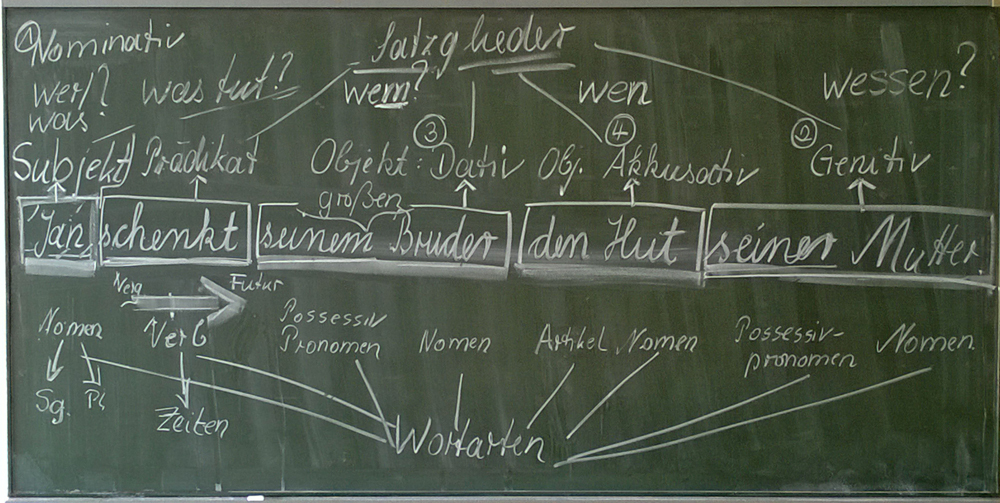 ① Nominativ
Satzglieder
wer? was tut? wem? wen wessen?
was?
③ ④ ②
Subjekt Prädikat Objekt: Dativ Obj. Akkusativ Genitiv
großen
Jan schenkt seinem Bruder den Hut seiner Mutter.
Futur
Nomen Verb Possessiv Pronomen Nomen Artikel Nomen Possessiv-
pronomen Nomen
Sg. Pl Zeiten
Wortarten